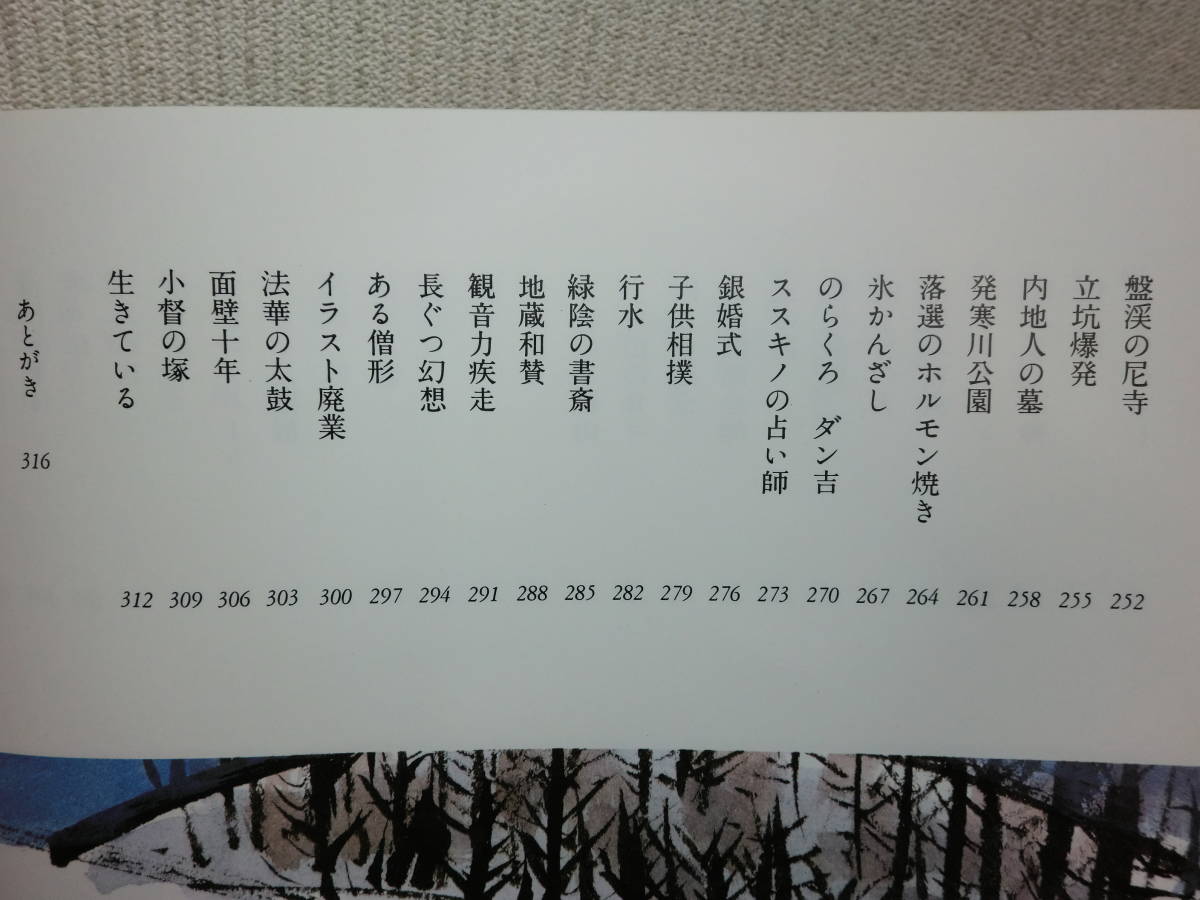 盤渓の尼寺 252
立坑爆発 255
内地人の墓 258
発寒川公園 261
落選のホルモン焼き 264
氷かんざし 267
のらくろ ダン吉 270
ススキノの占い師 273
銀婚式 276
子供相撲 279
行水 282
緑陰の書斎 285
地蔵和賛 288
観音力疾走 291
長ぐつ幻想 294
ある僧形 297
イラスト廃業 300
法華の太鼓 303
面壁十年 306
小督の塚 309
生きている 312
あとがき 316